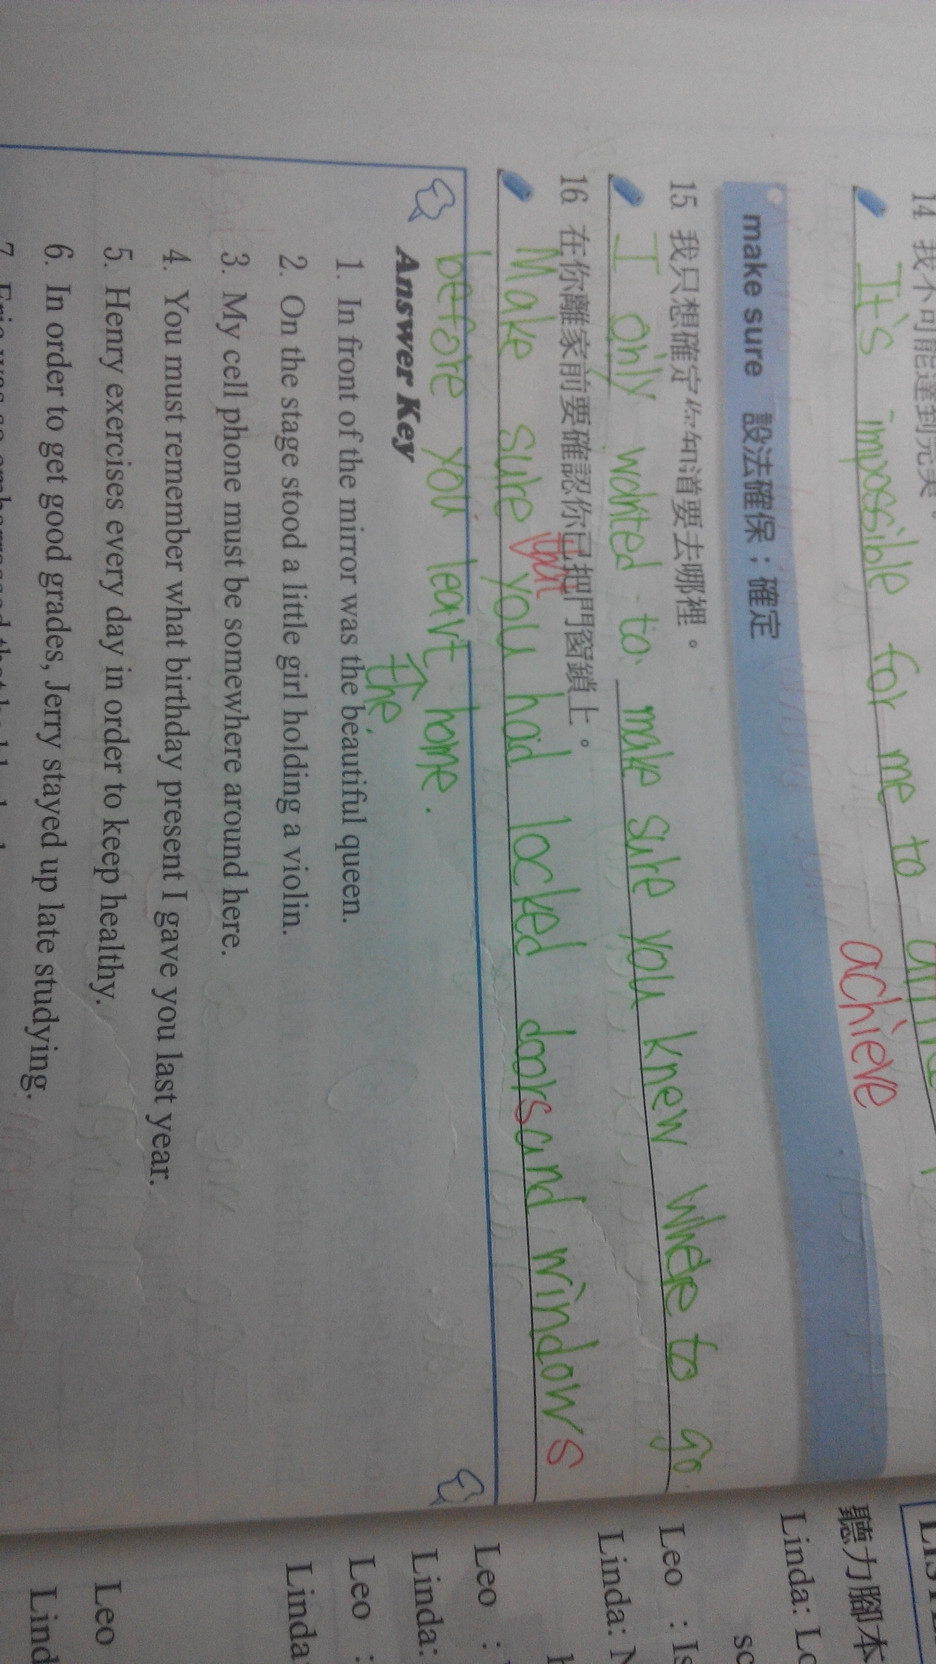 14 我不可能達到完美。
It's impossible for me to
achieve
make sure 設法確保；確定
15 我只想確定你知道要去哪裡。
I only wanted to make sure you knew where to go
16 在你離家前要確認你已把門窗鎖上。
that
Make sure you had locked doors and windows
before you leave home.
the
Answer Key
1. In front of the mirror was the beautiful queen.
2. On the stage stood a little girl holding a violin.
3. My cell phone must be somewhere around here.
4. You must remember what birthday present I gave you last year.
5. Henry exercises every day in order to keep healthy.
6. In order to get good grades, Jerry stayed up late studying.
聽力腳本
Linda: Lo
sc
Leo : Is
Linda: N
Leo :
Linda:
Leo :
Linda
Leo
Lind